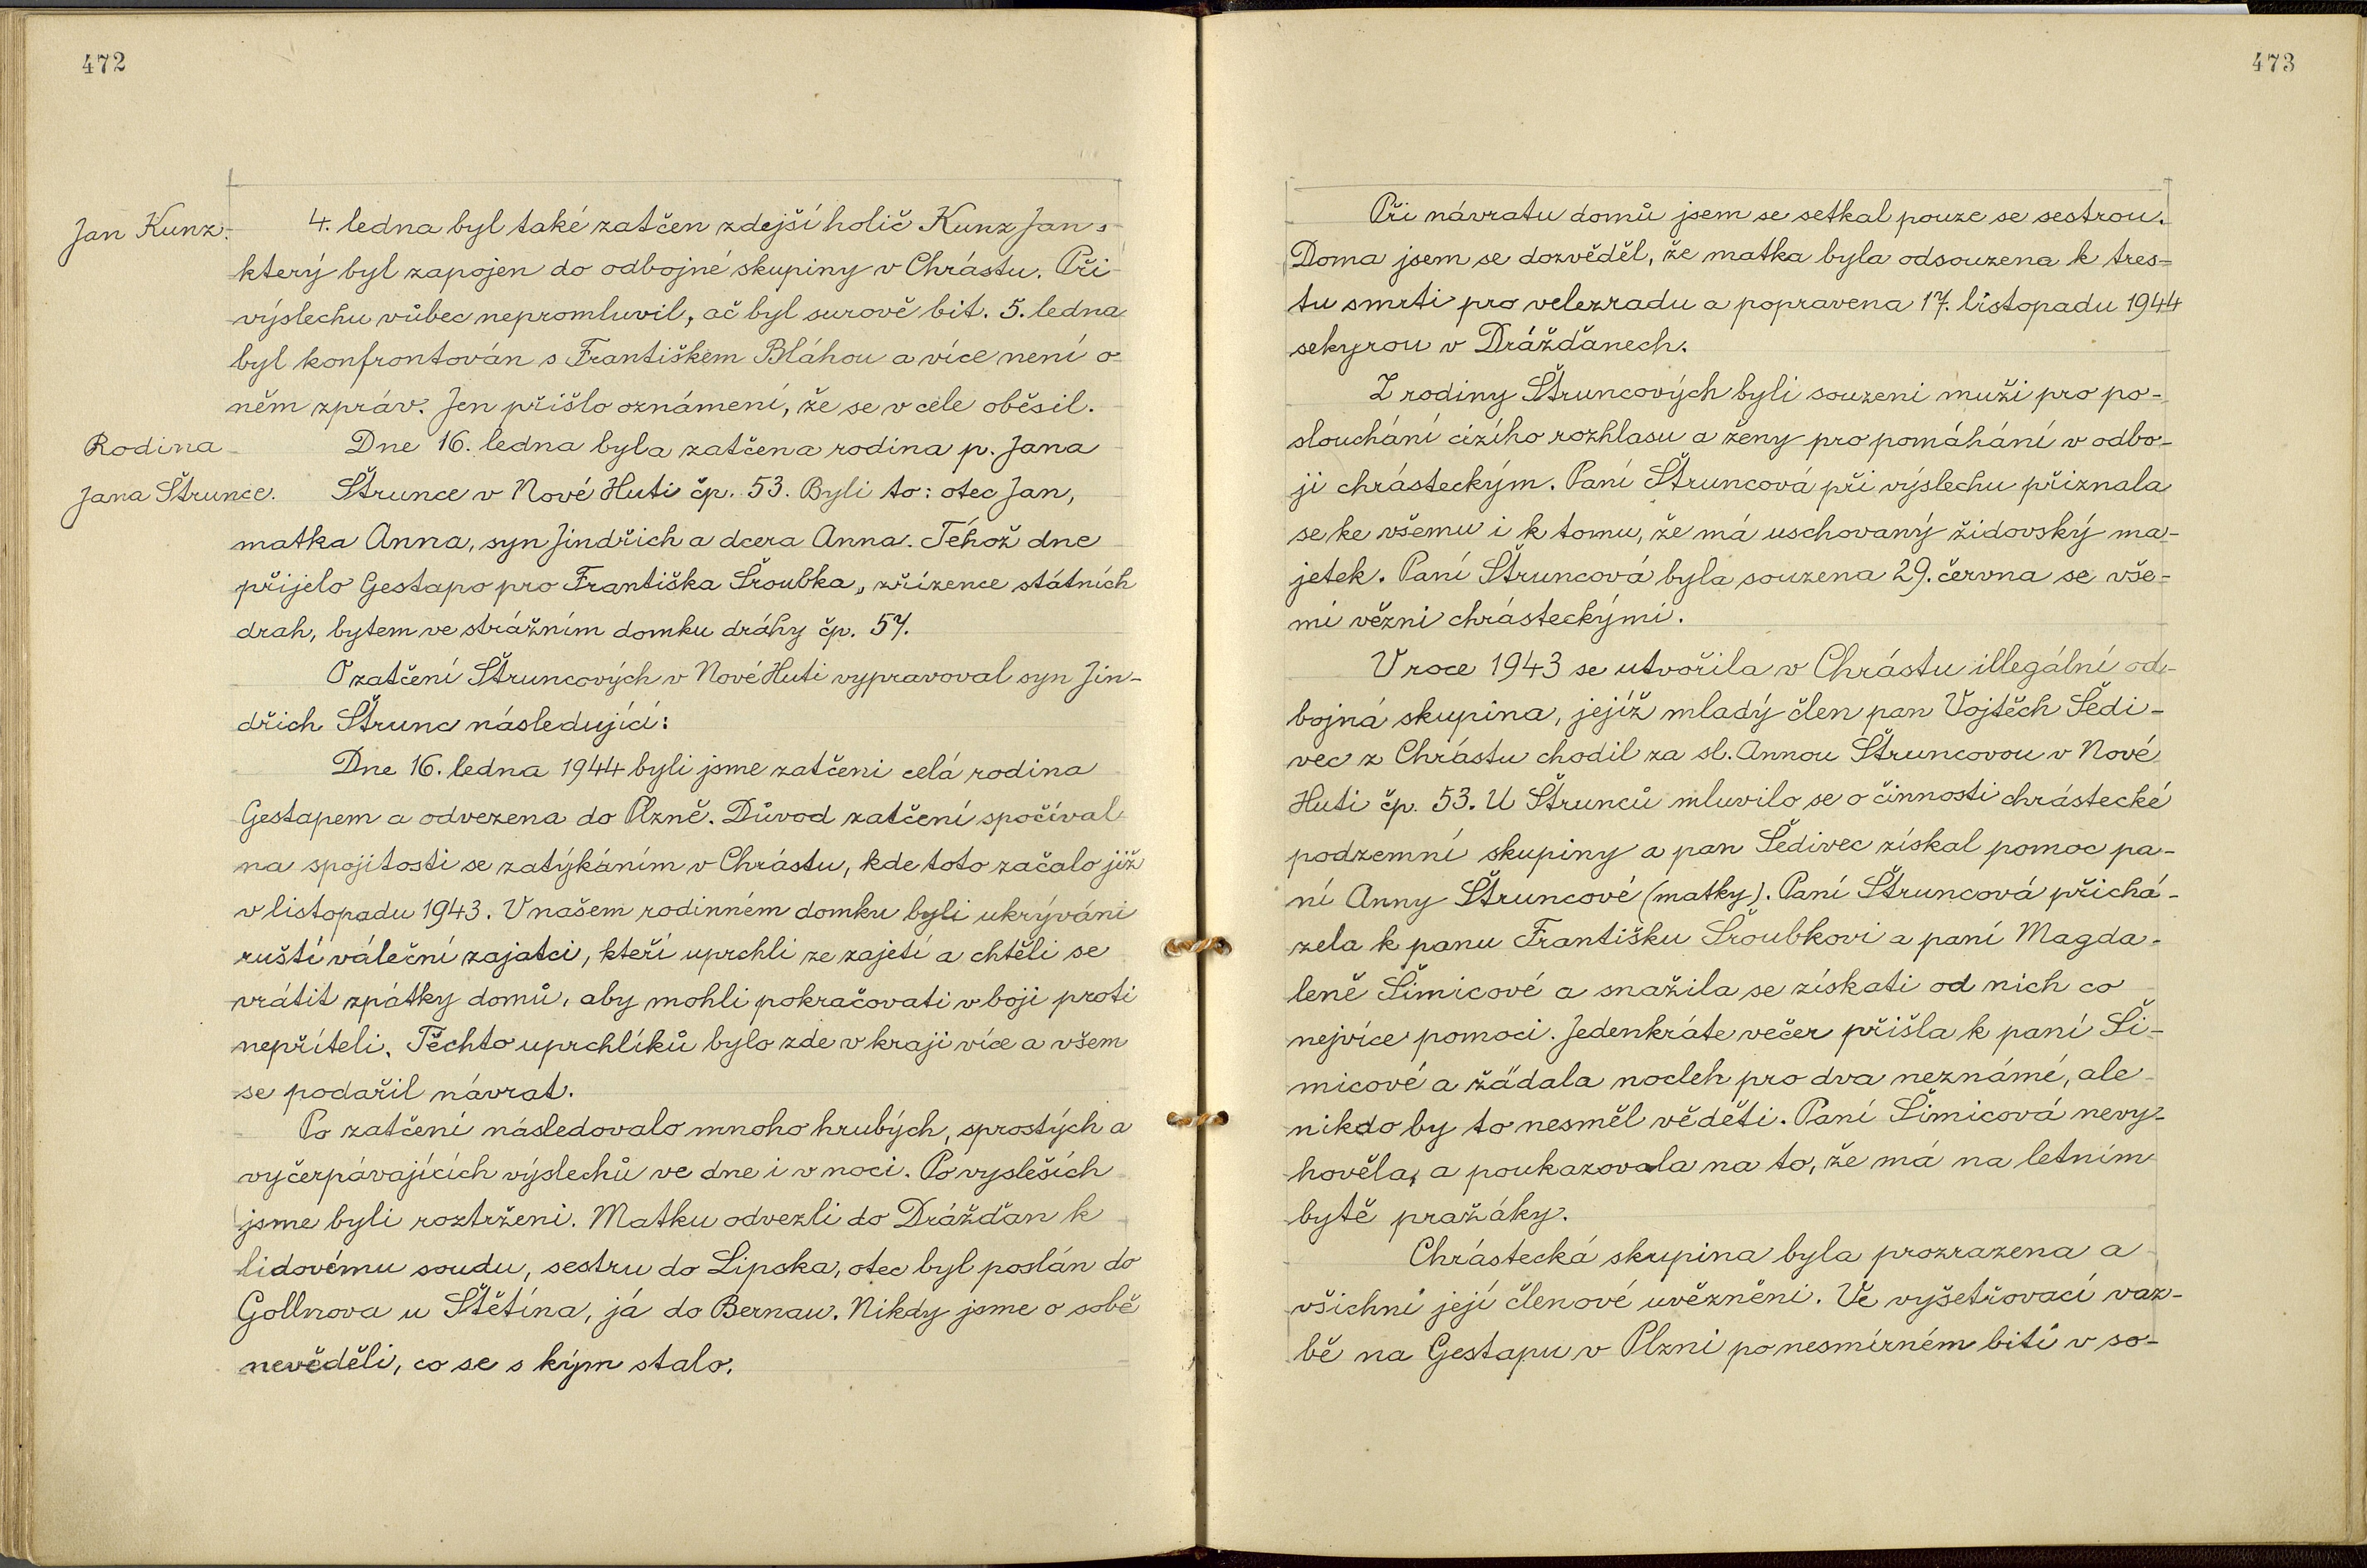 472
Jan Kunz.
4. ledna byl také zatčen zdejší holič Kunz Jan,
který byl zapojen do odbojné skupiny v Chrástu. Při
výslechu vůbec nepromluvil, ač byl surově bit. 5. ledna
byl konfrontován s Františkem Bláhou a více není o
něm zpráv. Jen přišlo oznámení, že se v cele oběsil.
Rodina
Jana Štrunce.
Dne 16. ledna byla zatčena rodina p. Jana
Štrunce v Nové Huti čp. 53. Byli to: otec Jan,
matka Anna, syn Jindřich a dcera Anna. Téhož dne
přijelo Gestapo pro Františka Šroubka, zřízence státních
drah, bytem ve strážním domku dráhy čp. 57.
O zatčení Štruncových v Nové Huti vypravoval syn Jin-
dřich Štrunc následující:
Dne 16. ledna 1944 byli jsme zatčeni celá rodina
Gestapem a odvezena do Plzně. Důvod zatčení spočíval
na spojitosti se zatýkáním v Chrástu, kde toto začalo již
v listopadu 1943. V našem rodinném domku byli ukrýváni
ruští váleční zajatci, kteří uprchli ze zajetí a chtěli se
vrátit zpátky domů, aby mohli pokračovati v boji proti
nepříteli. Těchto uprchlíků bylo zde v kraji více a všem
se podařil návrat.
Po zatčení následovalo mnoho hrubých, sprostých a
vyčerpávajících výslechů ve dne i v noci. Po vysleších
jsme byli roztrženi. Matku odvezli do Drážďan k
lidovému soudu, sestru do Lipska, otec byl poslán do
Gollnova u Štětína, já do Bernau. Nikdy jsme o sobě
nevěděli, co se s kým stalo.
473
Při návratu domů jsem se setkal pouze se sestrou.
Doma jsem se dozvěděl, že matka byla odsouzena k tres-
tu smrti pro velezradu a popravena 17. listopadu 1944
sekyrou v Drážďanech.
Z rodiny Štruncových byli souzeni muži pro po-
slouchání cizího rozhlasu a ženy pro pomáhání v odbo-
ji chrásteckým. Paní Štruncová při výslechu přiznala
se ke všemu i k tomu, že má uschovaný židovský ma-
jetek. Paní Štruncová byla souzena 29. června se vše-
mi vězni chrásteckými.
V roce 1943 se utvořila v Chrástu illegální od-
bojná skupina, jejíž mladý člen pan Vojtěch Šedi-
vec z Chrástu chodil za sl. Annou Štruncovou v Nové
Huti čp. 53. U Štrunců mluvilo se o činnosti chrástecké
podzemní skupiny a pan Šedivec získal pomoc pa-
ní Anny Štruncové (matky). Paní Štruncová přichá-
zela k panu Františku Šroubkovi a paní Magda-
leně Šimicové a snažila se získati od nich co
nejvíce pomoci. Jedenkráte večer přišla k paní Ši-
micové a žádala nocleh pro dva neznámé, ale
nikdo by to nesměl věděti. Paní Šimicová nevy-
hověla, a poukazovala na to, že má na letním
bytě pražáky.
Chrástecká skupina byla prozrazena a
všichni její členové uvězněni. Ve vyšetřovací vaz-
bě na Gestapu v Plzni po nesmírném bití v so-